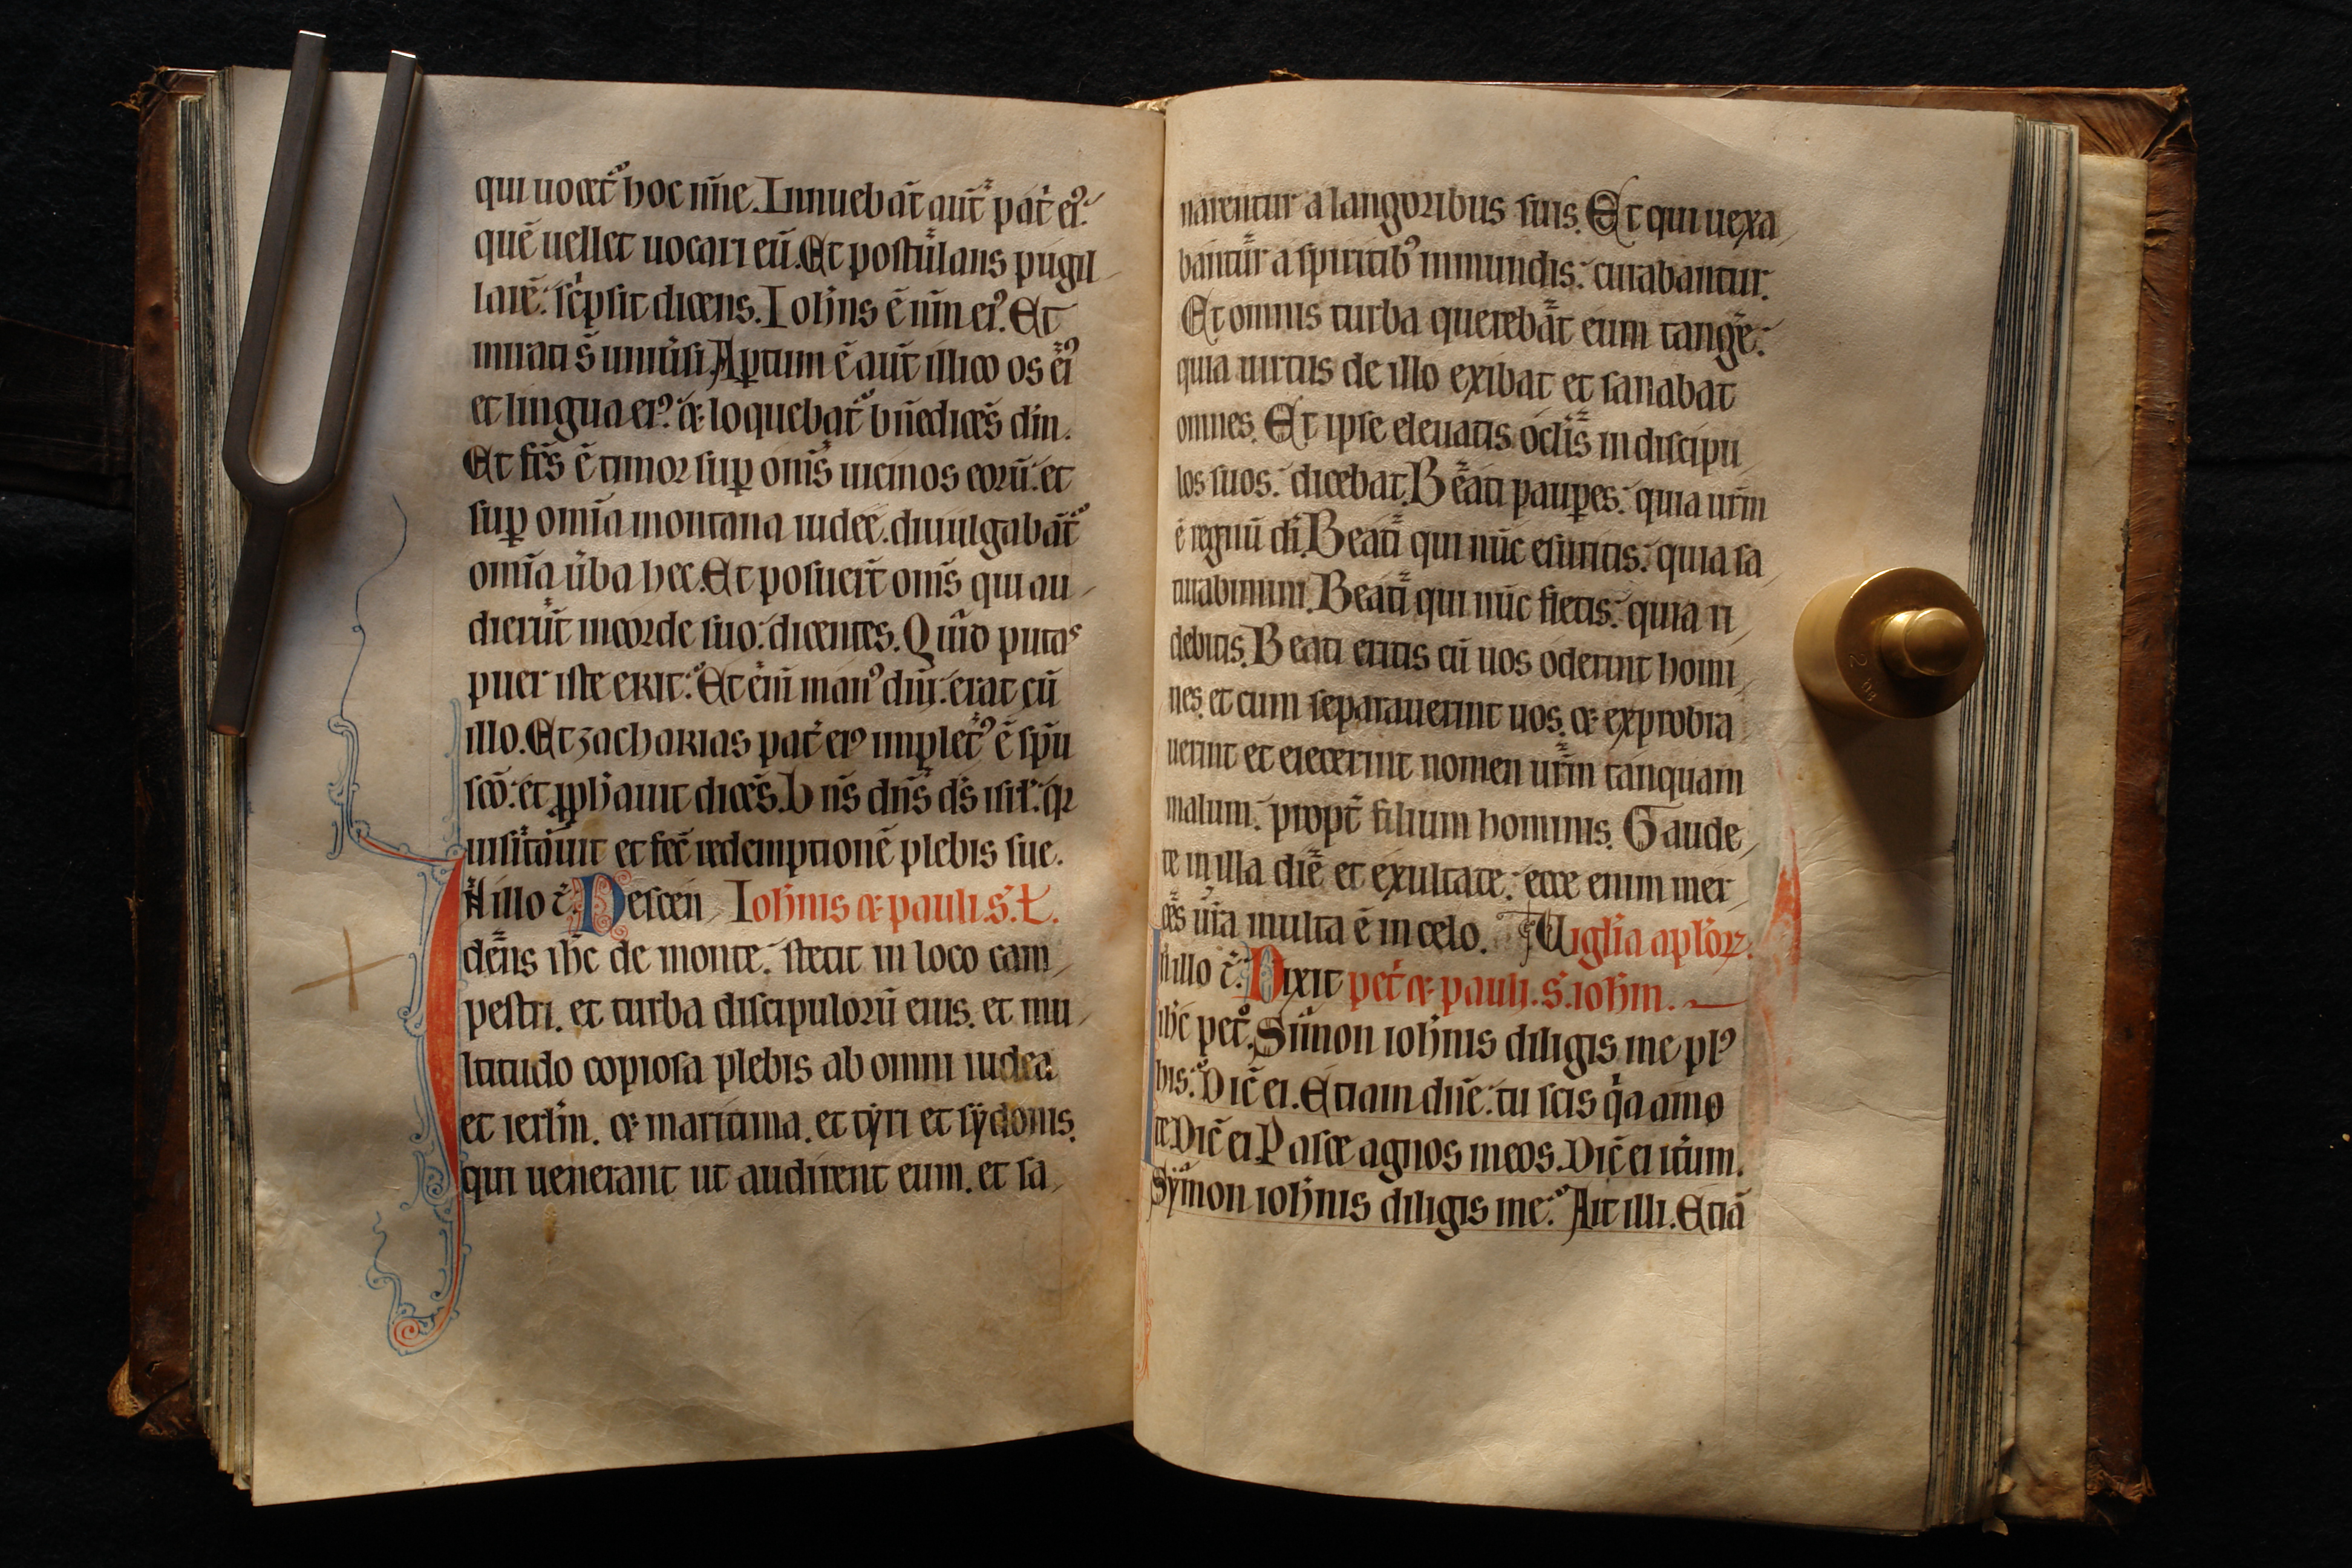 qui uocet᷑ hoc nr̄e. Innuebāt aūt pat̓ eiꝰ
quē uellet uocari eū. Et postul̄ans pugil
larē: sc̓psit dicens. Ioh̄ns ē nm̄ eiꝰ. Et
mirati s̄ uniũsi. Aꝑtum ē aūt illico os eiꝰ
et lingua eiꝰ. ⁊ loquebat᷑ bn̄edicēs dm̄.
Et fc̄s ē timor suꝑ om̄s uicinos eorū. et
suꝑ om̄ia montana iudee. diuulgabāt᷑
om̄ia ũba hec. Et posuer̄t om̄s qui au
dierūt in corde suo: dicentes. Quid putas
puer iste erit: Et eīm manꝰ dn̄i: erat cū
illo. Et zacharias pat̓ eiꝰ implet᷑ꝰ ē sp̄u
sc̄o: et ꝓph̄auit dicēs. Bn̄s dn̄s d̄s isrl̓: qꝛ
uisitauit et fec̄ redemptionē plebis sue.
In illo t̄. Descen Ioh̄nis ⁊ pauli. s̄. L.
dens ih̄c de monte: stetit in loco cam
pestri. et turba discipulorū eius. et mu
ltitudo copiosa plebis ab omni iudea
et ierl̄m. ⁊ maritima. et tyri et sydonis.
qui uenerant ut audirent eum. et sa
narentur a langoribus suis. Et qui uexa
bant᷑ur a spiritibꝰ inmundis: curabantur.
Et omnis turba querebāt eum tang̓e:
quia uirtus de illo exibat et sanabat
omnes. Et ipse eleuatis ocl̄is in discipu
los suos: dicebat. Beati pauꝑes: quia ur̄m
ē regnū di. Beati qui nūc esuritis: quia sa
turabimini. Beati qui nūc fletis: quia ri
debitis. Beati eritis cū uos oderint homi
nes. et cum separauerint uos. ⁊ exprobra
uerint et eiecerint nomen ur̄m tanquam
malum: propt̓ filium hominis. Gaude
te in illa die et exultate: ecce enim mer
ces ur̄a multa ē in celo. Uigl̄ia apl̄oꝝ.
In illo t̄. Dixit pet̓ ⁊ pauli. s̄. ioh̄m.
ih̄c pet̓. Simon ioh̄nis diligis me plꝰ
his: Dic̄ ei. Etiam dn̄e: tu scis qa amo
te. Dic̄ ei. Pasce agnos meos. Dic̄ ei it̓um.
Symon ioh̄nis diligis me: Ait illi. Etiā
2